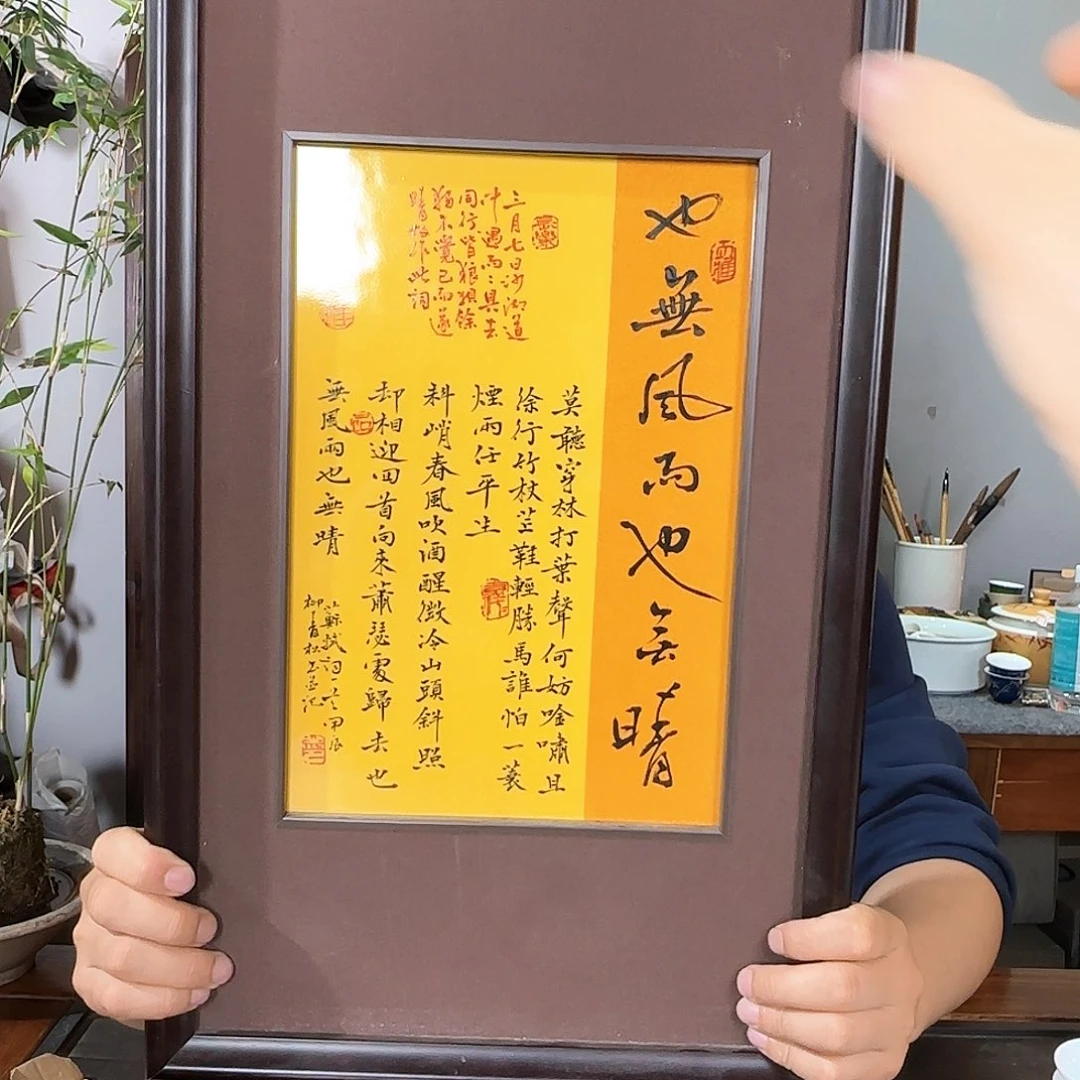 也無風雨也無晴
三月七日沙湖道
中遇雨〻具去
同行皆狼狽餘
獨不覺已而遂
晴故作此詞
莫聽穿林打葉聲何妨唫嘯且
徐行竹杖芒鞵輕勝馬誰怕一蓑
煙雨任平生
料峭春風吹酒醒微冷山頭斜照
却相迎回首向來蕭瑟處歸去也
無風雨也無晴
蘇軾詞一首甲辰
柳青松